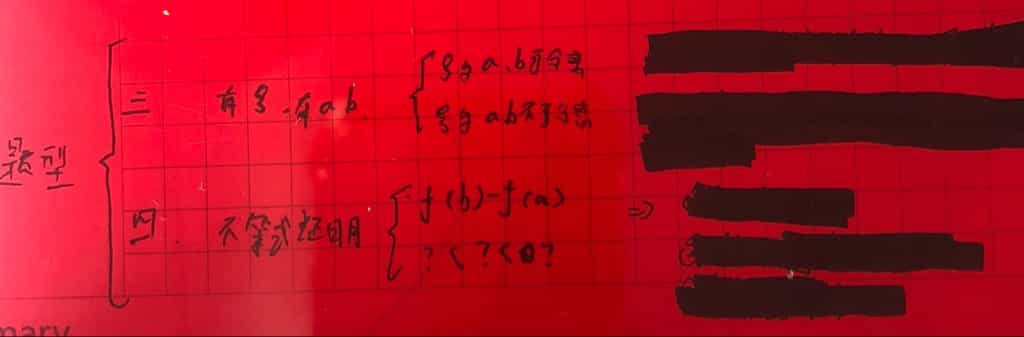 题型
三 有ξ、有ab.
ξ与a、b可分离
ξ与ab不可分离
四. 不等式证明
f(b)-f(a) ⇒
? < ? < ?
mary